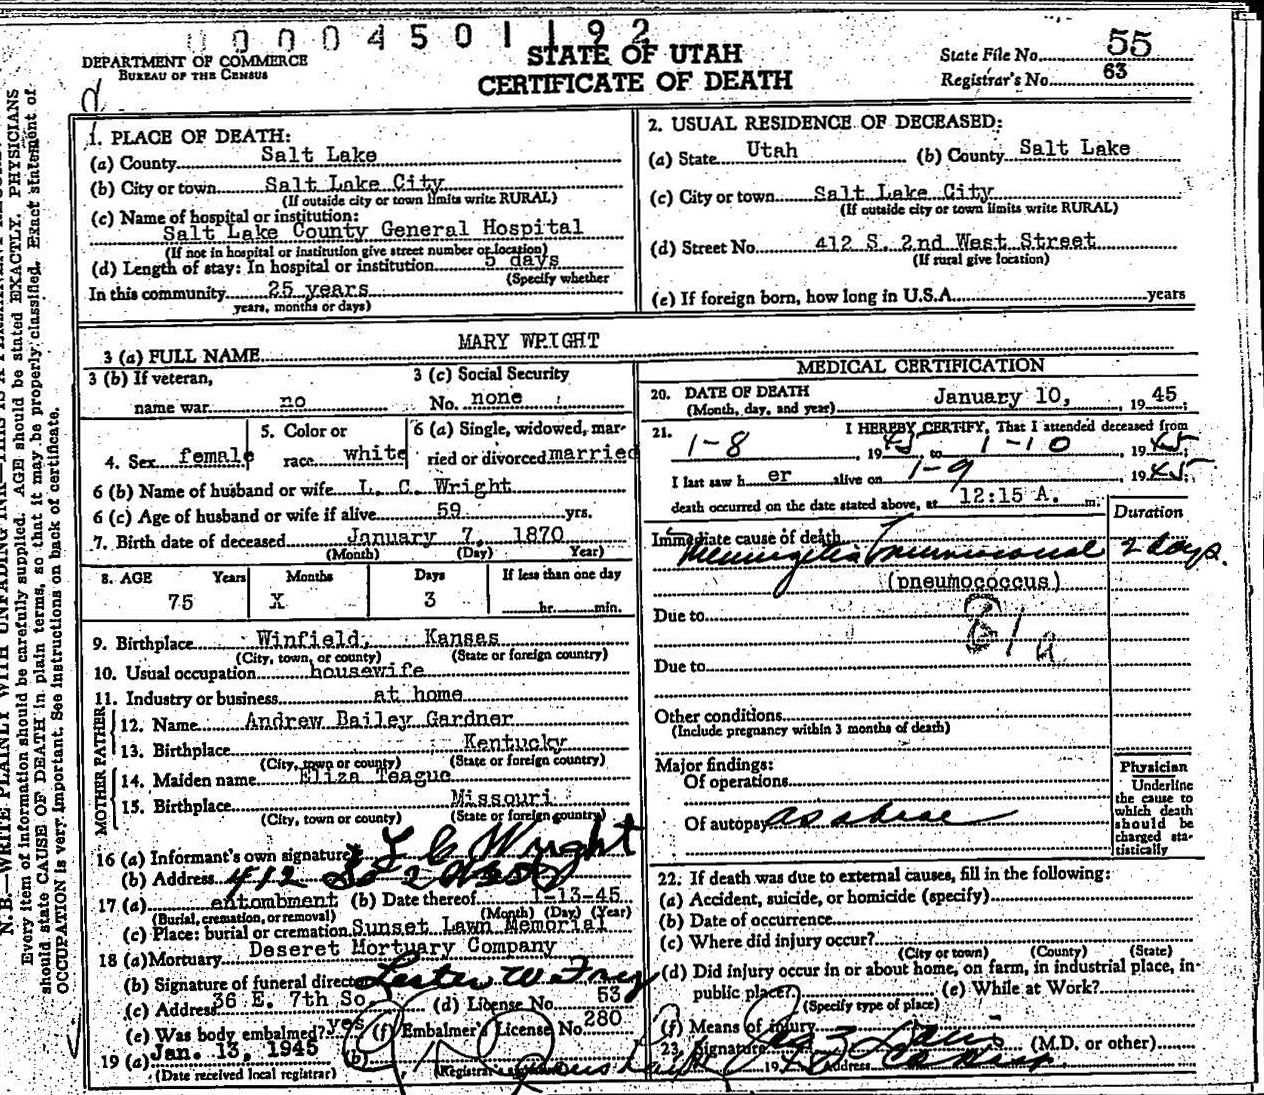 00004501192
DEPARTMENT OF COMMERCE
BUREAU OF THE CENSUS
STATE OF UTAH
CERTIFICATE OF DEATH
State File No. 55
Registrar's No. 63
1. PLACE OF DEATH:
(a) County Salt Lake
(b) City or town Salt Lake City
(If outside city or town limits write RURAL)
(c) Name of hospital or institution:
Salt Lake County General Hospital
(If not in hospital or institution give street number or location)
(d) Length of stay: In hospital or institution 5 days
(Specify whether
In this community 25 years
years, months or days)
2. USUAL RESIDENCE OF DECEASED:
(a) State Utah (b) County Salt Lake
(c) City or town Salt Lake City
(If outside city or town limits write RURAL)
(d) Street No. 412 S. 2nd West Street
(If rural give location)
(e) If foreign born, how long in U.S.A. years
3 (a) FULL NAME MARY WRIGHT
3 (b) If veteran,
name war no
3 (c) Social Security
No. none
4. Sex female
5. Color or
race white
6 (a) Single, widowed, mar-
ried or divorced married
6 (b) Name of husband or wife L. C. Wright
6 (c) Age of husband or wife if alive 59 yrs.
7. Birth date of deceased January 7, 1870
(Month) (Day) Year)
8. AGE Years Months Days If less than one day
75 X 3 hr. min.
9. Birthplace Winfield, Kansas
(City, town, or county) (State or foreign country)
10. Usual occupation housewife
11. Industry or business at home
FATHER
12. Name Andrew Bailey Gardner
13. Birthplace Kentucky
(City, town or county) (State or foreign country)
MOTHER
14. Maiden name Eliza Teague
15. Birthplace Missouri
(City, town or county) (State or foreign country)
16 (a) Informant's own signature L C Wright
(b) Address 412 So 2 West
17 (a) entombment (b) Date thereof 1-13-45
(Burial, cremation, or removal) (Month) (Day) (Year)
(c) Place: burial or cremation Sunset Lawn Memorial
18 (a) Mortuary Deseret Mortuary Company
(b) Signature of funeral director Lester W
(c) Address 36 E. 7th So. (d) License No. 53
(e) Was body embalmed? yes (f) Embalmer's License No. 280
19 (a) Jan. 13, 1945 (b)
(Date received local registrar) (Registrar's signature)
MEDICAL CERTIFICATION
20. DATE OF DEATH
(Month, day, and year) January 10, , 1945;
21. I HEREBY CERTIFY, That I attended deceased from
1-8 , 1945, to 1-10 , 1945;
I last saw her alive on 1-9 , 1945;
death occurred on the date stated above, at 12:15 A. m.
Duration
Immediate cause of death
Meningitis Pneumococcal 2 days.
(pneumococcus)
Due to
81 a
Due to
Other conditions
(Include pregnancy within 3 months of death)
Major findings:
Of operations
Of autopsy as above
Physician
Underline
the cause to
which death
should be
charged sta-
tistically
22. If death was due to external causes, fill in the following:
(a) Accident, suicide, or homicide (specify)
(b) Date of occurrence
(c) Where did injury occur?
(City or town) (County) (State)
(d) Did injury occur in or about home, on farm, in industrial place, in
public place? (e) While at Work?
(Specify type of place)
(f) Means of injury
23. Signature (M.D. or other)
19 Address
N.B.—WRITE PLAINLY WITH UNFADING INK—THIS IS A PERMANENT
Every item of information should be carefully supplied. AGE should be stated EXACTLY. PHYSICIANS
should state CAUSE OF DEATH in plain terms, so that it may be properly classified. Exact statement of
OCCUPATION is very important. See instructions on back of certificate.